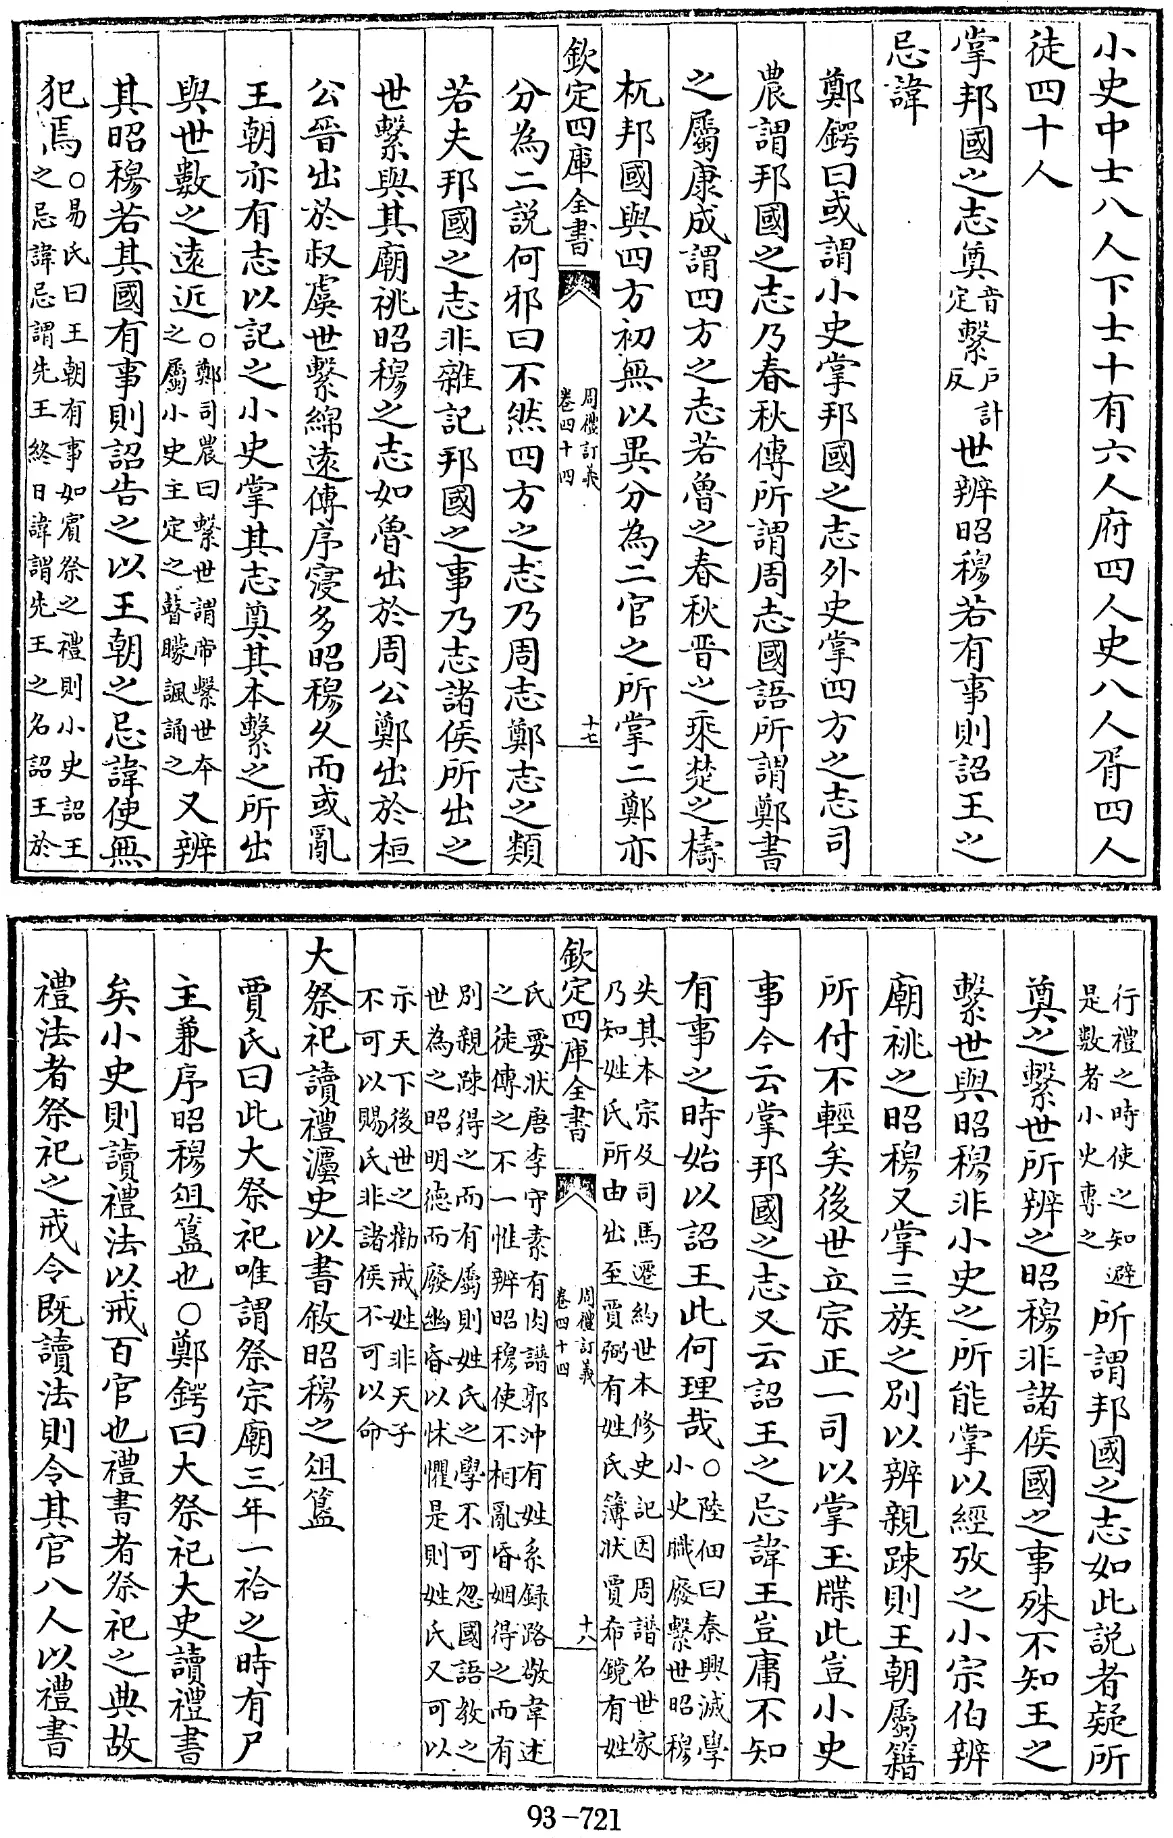 小史中士八人下士十有六人府四人史八人胥四人
徒四十人
掌邦國之志奠音定繫戶計反世辨昭穆若有事則詔王之
忌諱
鄭鍔曰或謂小史掌邦國之志外史掌四方之志司
農謂邦國之志乃春秋傳所謂周志國語所謂鄭書
之屬康成謂四方之志若魯之春秋晉之乘楚之檮
杌邦國與四方初無以異分為二官之所掌二鄭亦
欽定四庫全書
周禮訂義
卷四十四
十七
分為二說何邪曰不然四方之志乃周志鄭志之類
若夫邦國之志非雜記邦國之事乃志諸侯所出之
世繫與其廟祧昭穆之志如魯出於周公鄭出於桓
公晉出於叔虞世繫綿遠傳序寖多昭穆久而或亂
王朝亦有志以記之小史掌其志奠其本繫之所出
與世數之遠近○鄭司農曰繫世謂帝繫世本之屬小史主定之瞽矇諷誦之又辨
其昭穆若其國有事則詔告之以王朝之忌諱使無
犯焉○易氏曰王朝有事如賓祭之禮則小史詔王之忌諱忌謂先王終日諱謂先王之名詔王於
行禮之時使之知避是數者小史專之所謂邦國之志如此說者疑所
奠之繫世所辨之昭穆非諸侯國之事殊不知王之
繫世與昭穆非小史之所能掌以經攷之小宗伯辨
廟祧之昭穆又掌三族之別以辨親踈則王朝屬籍
所付不輕矣後世立宗正一司以掌玉牒此豈小史
事今云掌邦國之志又云詔王之忌諱王豈庸不知
有事之時始以詔王此何理哉○陸佃曰秦興滅學小史職廢繫世昭穆
失其本宗及司馬遷約世本修史記因周譜名世家乃知姓氏所由出至賈弼有姓氏簿狀賈希鏡有姓
欽定四庫全書
周禮訂義
卷四十四
十八
氏要狀唐李守素有肉譜郭沖有姓系録路敬韋述之徒傳之不一惟辨昭穆使不相亂昏姻得之而有
別親踈得之而有屬則姓氏之學不可忽國語教之世為之昭明德而廢幽昏以怵懼是則姓氏又可以
示天下後世之勸戒姓非天子不可以賜氏非諸侯不可以命
大祭祀讀禮灋史以書敘昭穆之俎簋
賈氏曰此大祭祀唯謂祭宗廟三年一祫之時有尸
主兼序昭穆俎簋也○鄭鍔曰大祭祀大史讀禮書
矣小史則讀禮法以戒百官也禮書者祭祀之典故
禮法者祭祀之戒令既讀法則令其官八人以禮書
93-721